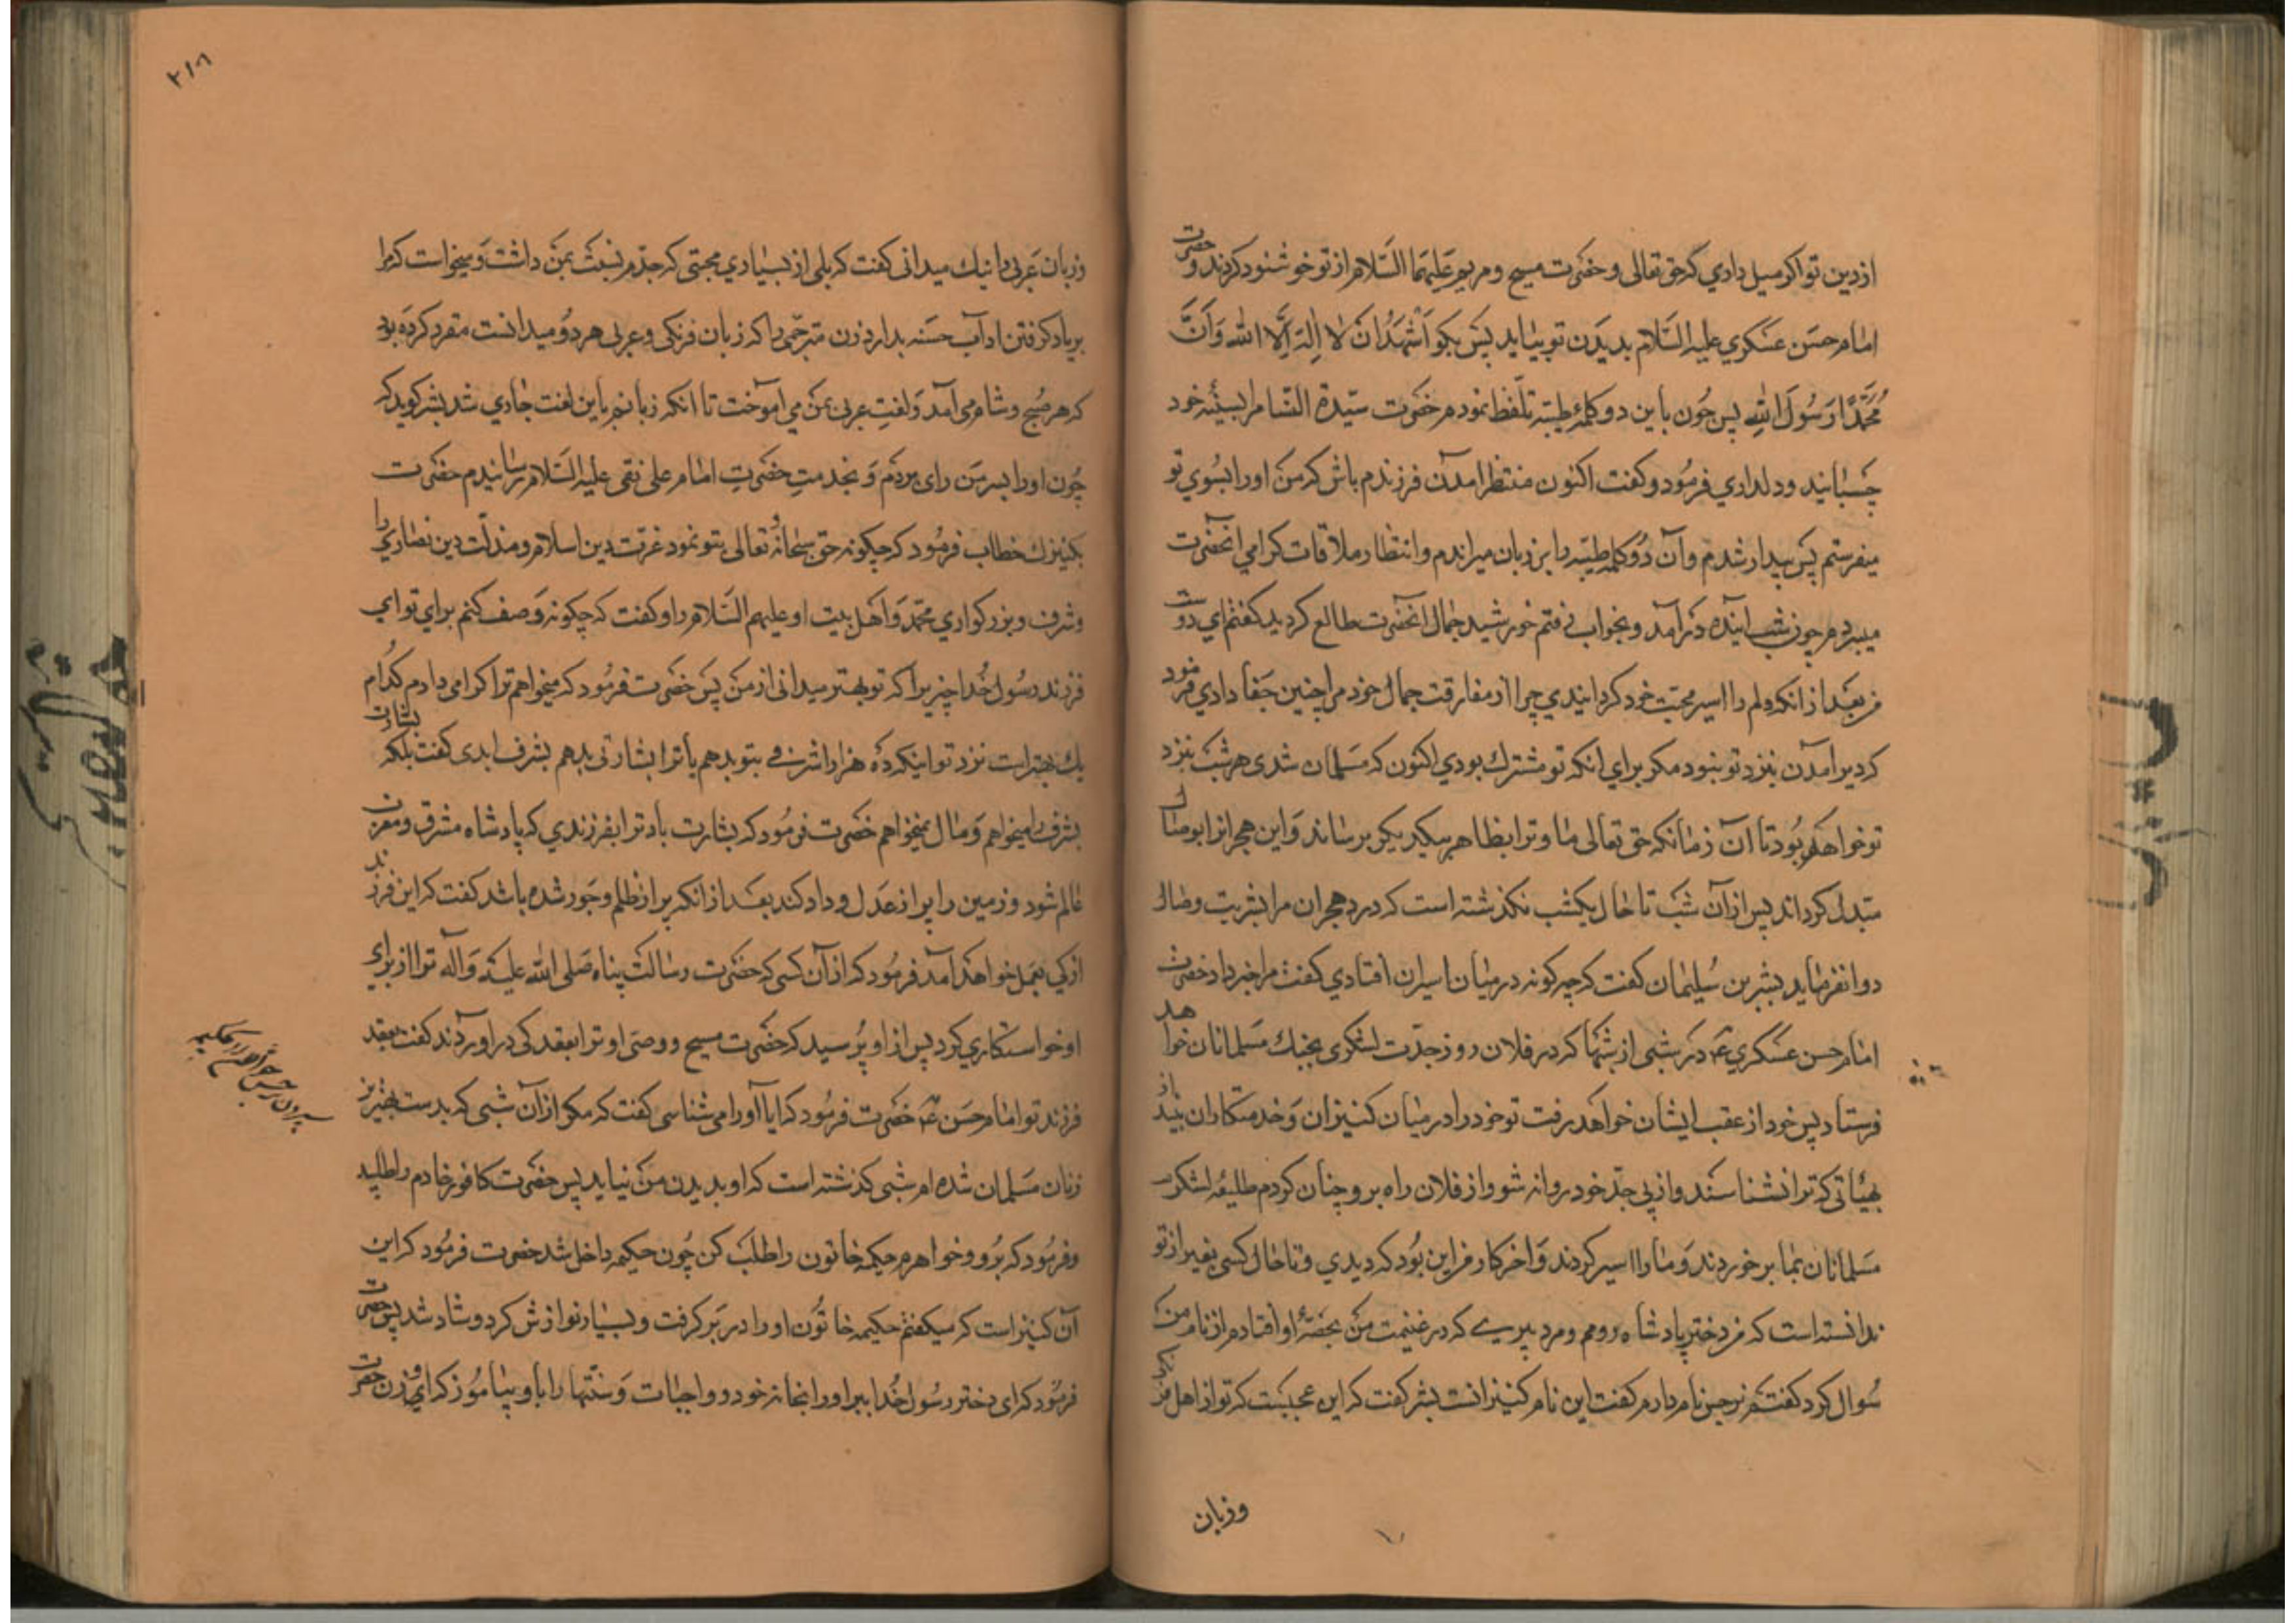 از دین تو اکر میل داري که حق تعالی و حضرت مسیح و مریم علیهما السّلام از تو خوشنود کردند و حضرت
امام حسن عسکري علیه السّلام بدیدن تو بیاید پس بکو اَشهَدُ انَ لا اِلهَ اِلّا الله وَ اَنَّ
مُحَمَّدًا رَسُولُ اللهِ پس چون باین دو کلمهٔ طیبّه تلّفظ نمودم حضرت سیّدة النّسا مرا بسینهٔ خود
چسبانید و دلداري فرمود و کفت اکنون منتظر امدن فرزندم باش که من او را بسُوي تو
میفرستم پس بیدار شدم و آن دُو کلمه طیبّه را بر زبان میراندم و انتظار ملاقات کرامي انحضرت
میبردم چون شب اینده دَر آمد و بخواب رفتم خورشید جمال انحضرت طالع کردید کفتم اي دوست
من بعد از انکه دلم را اسیر محبّت خود کردانیدي چرا از مفارقت جمال خود مرا چنین جَفا دادي فرمود که
دیر آمدن بنزد تو نبود مکر براي انکه تو مشرك بودي اکنون که مسَلمان شدی هر شب بنزد
تو خواهم بُود تا آن زمانکه حق تعالی ما و ترا بظاهر بیکدیکر برساند وَ این هجرانرا بوصال
مبّدل کرداند پس از آن شَب تا حال یکشب نکذشته است که درد هجران مرا بشربت وصال
دوا نفرماید بشر بن سُلیمان کفت که چه کونه در میان اسیران افتادي کفت مرا خبر داد حضرت
امام حسن عسکري ع در شبی از شبها که در فلان روز جدّت لشکری بجنك مسَلمانان خواهد
فرستاد پس خود از عقب ایشان خواهد رفت تو خود را در میان کنیزان وَ خدمتکاران بینداز
بهیأتی که ترا نشناسند و از پی جدّ خود روانه شو و از فلان راه برو چنان کردم طلیعهٔ لشکر
مسَلمانان بما بر خوردند وَ ما را اسیر کردند وَ اخر کار من این بُود که دیدي و تا حال کسی بغیر از تو
ندانسته است که من دختر پادشاه رومم و مرد پیرے که در غنیمت من بحصّهٔ او افتادم از نام من
سُوال کرد کفتم نرجس نام دارم کفت این نام کنیزانست بشر کفت که این عجبست که تو از اهل فرنکی
و زبان
۲۱۸
و زبان عَربی را نیك میدانی کفت که بلی از بسیاري محبّتی که جدّم نسبت بمَن داشت وَ میخواست که مرا
بر یاد کرفتن اداب حسَنه بدارد زن مترجّمی را که زبان فرنکی و عربی هر دُو میدانست مقرر کرده بود
که هر صُبح و شام می آمد وَ لغتِ عربی بمَن می آموخت تا انکه زبانم باین لغت جاري شد بشر کوید که
چُون او را بسر مَن رای بردَم وَ بخدمتِ حضَرتِ امام علی نقی علیه السَلام رسانیدم حضَرت
بکنیزك خطاب فرمُود که چکونه حق سبحانهٔ وَ تعالی بتو نمود عزّت دین اسلام و مذلّت دین نصاری را
و شرف و بزرکواري محمّد وَ اهَل بیت او علیهم السّلام را و کفت که چکونه وَصف کنم براي تو اي
فرزند رسُول خُدا چیزیرا که تو بهتر میدانی از من پس حضَرت فرمُود که میخواهم ترا کرامی دارم کُدام
یك بهتر است نزد تو اینکه دَه هزار اشرفی بتو بدهم یا ترا بشارتی بدهم بشرف ابدی کفت بلکه بشارت
بشرف را میخواهم وَ مال نمیخواهم حضَرت فرمُود که بشارت باد ترا بفرزندي که پادشاه مشرق و مغرب
عالم شود و زمین را پر از عَدل و داد کند بعَد از انکه پر از ظلم و جَور شده باشد کفت که این فرزند
از کي بعمل خواهد آمد فرمُود که از آن کسی که حضَرت رسالت پناه صَلی الله علیهَ وَ آله ترا از براي
او خواستکاري کرد پس از او پُرسید که حضرت مسیح و وصی او ترا بعقد کی در اوردند کفت بعقد
فرزند تو امام حسَن ع حضَرت فرمُود که ایا او را می شناسی کفت که مکر از آن شبی که بدست بهترین
زنان مسَلمان شده ام شبی کذشته است که او بدیدن مَن نیاید پس حضَرت کافور خادم را طلبید
و فرمُود که بُرو و خواهرم حکیمه خاتون را طلَب کن چُون حکیمه داخل شد حضَرت فرمُود که این
آن کنیز است که میکفتم حکیمه خاتُون او را در بَر کرفت و بسیار نوازش کرد و شاد شد پس حضرت
فرمُود که ای دختر رسُول خُدا ببر او را بخانه خود و واجبات وَ سنّتها را باو بیامُوز که او زن حضرت